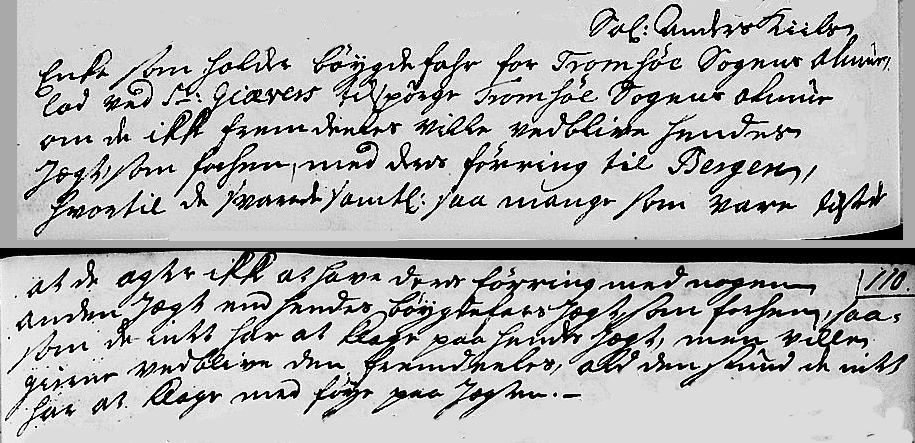 Sal: Anders Kiils
Enke som holder bøygdefahr for Tromsøe Sogens Almue,
lod ved Sr: Giævers tilspørge Tromsøe Sogens Almue
om de ikk fremdeeles ville vedblive hendes
Jægt, som forhen, med deres førring til Bergen,
hvortil de svarede samtl: saa mange som vare tilstæ
at de agter ikk at have deres førring med nogen 110.
anden Jægt end hendes bøygdefars Jægt, som forhen, saa-
som de intt har at klage paa hendes Jægt, men ville
gierne vedblive den fremdeeles, ald den stund de intt
har at klage med føye paa Jægten.-